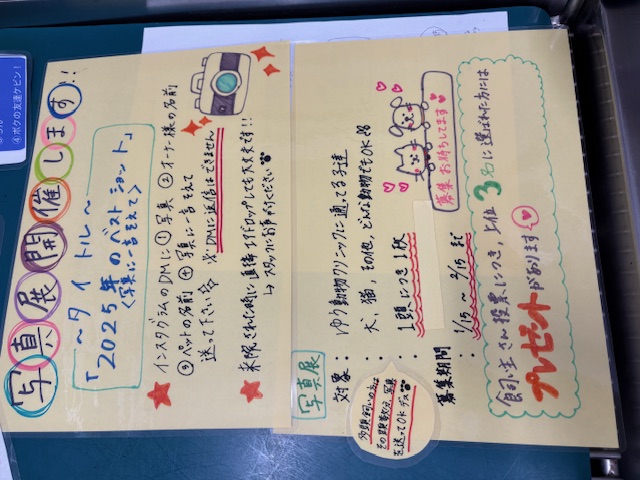 「写真展開催します!!
~タイトル~
「2025年のベストショット」
<写真に一言をそえて>
★ インスタグラムのDMに①写真 ②オーナー様の名前
③ペットの名前 ④写真に一言 をそえて
送って下さい ※DMに返信はできません
★ 来院された時に直接エアドロップしても大丈夫です!!
↳スタッフにお声がけください
写真展
対象 : ゆり動物クリニックに通ってる子達
犬、猫、その他、どんな動物でもOK
: 1頭につき1枚
多頭飼いの方は
その頭数分、写真
を送ってOKデス
募集期間 : 1/15~2/15まで
募集 お待ちしてます
飼い主さん投票につき、上位3名に選ばれた方には
プレゼントがあります
④ボクの友達ケビン!